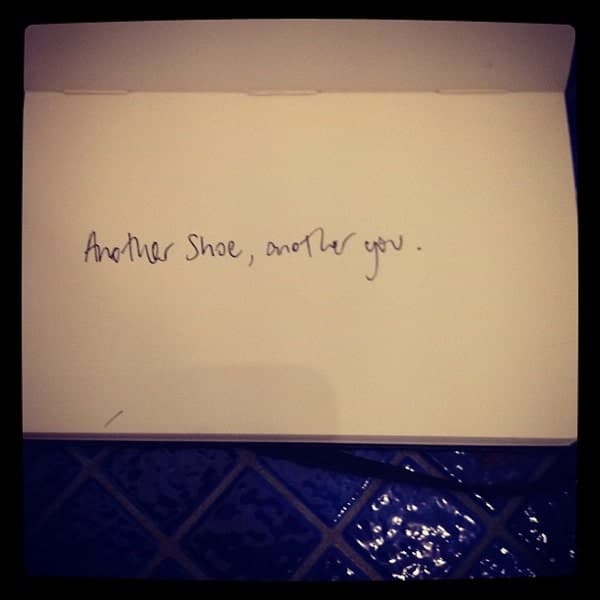 Another Shoe, another you.